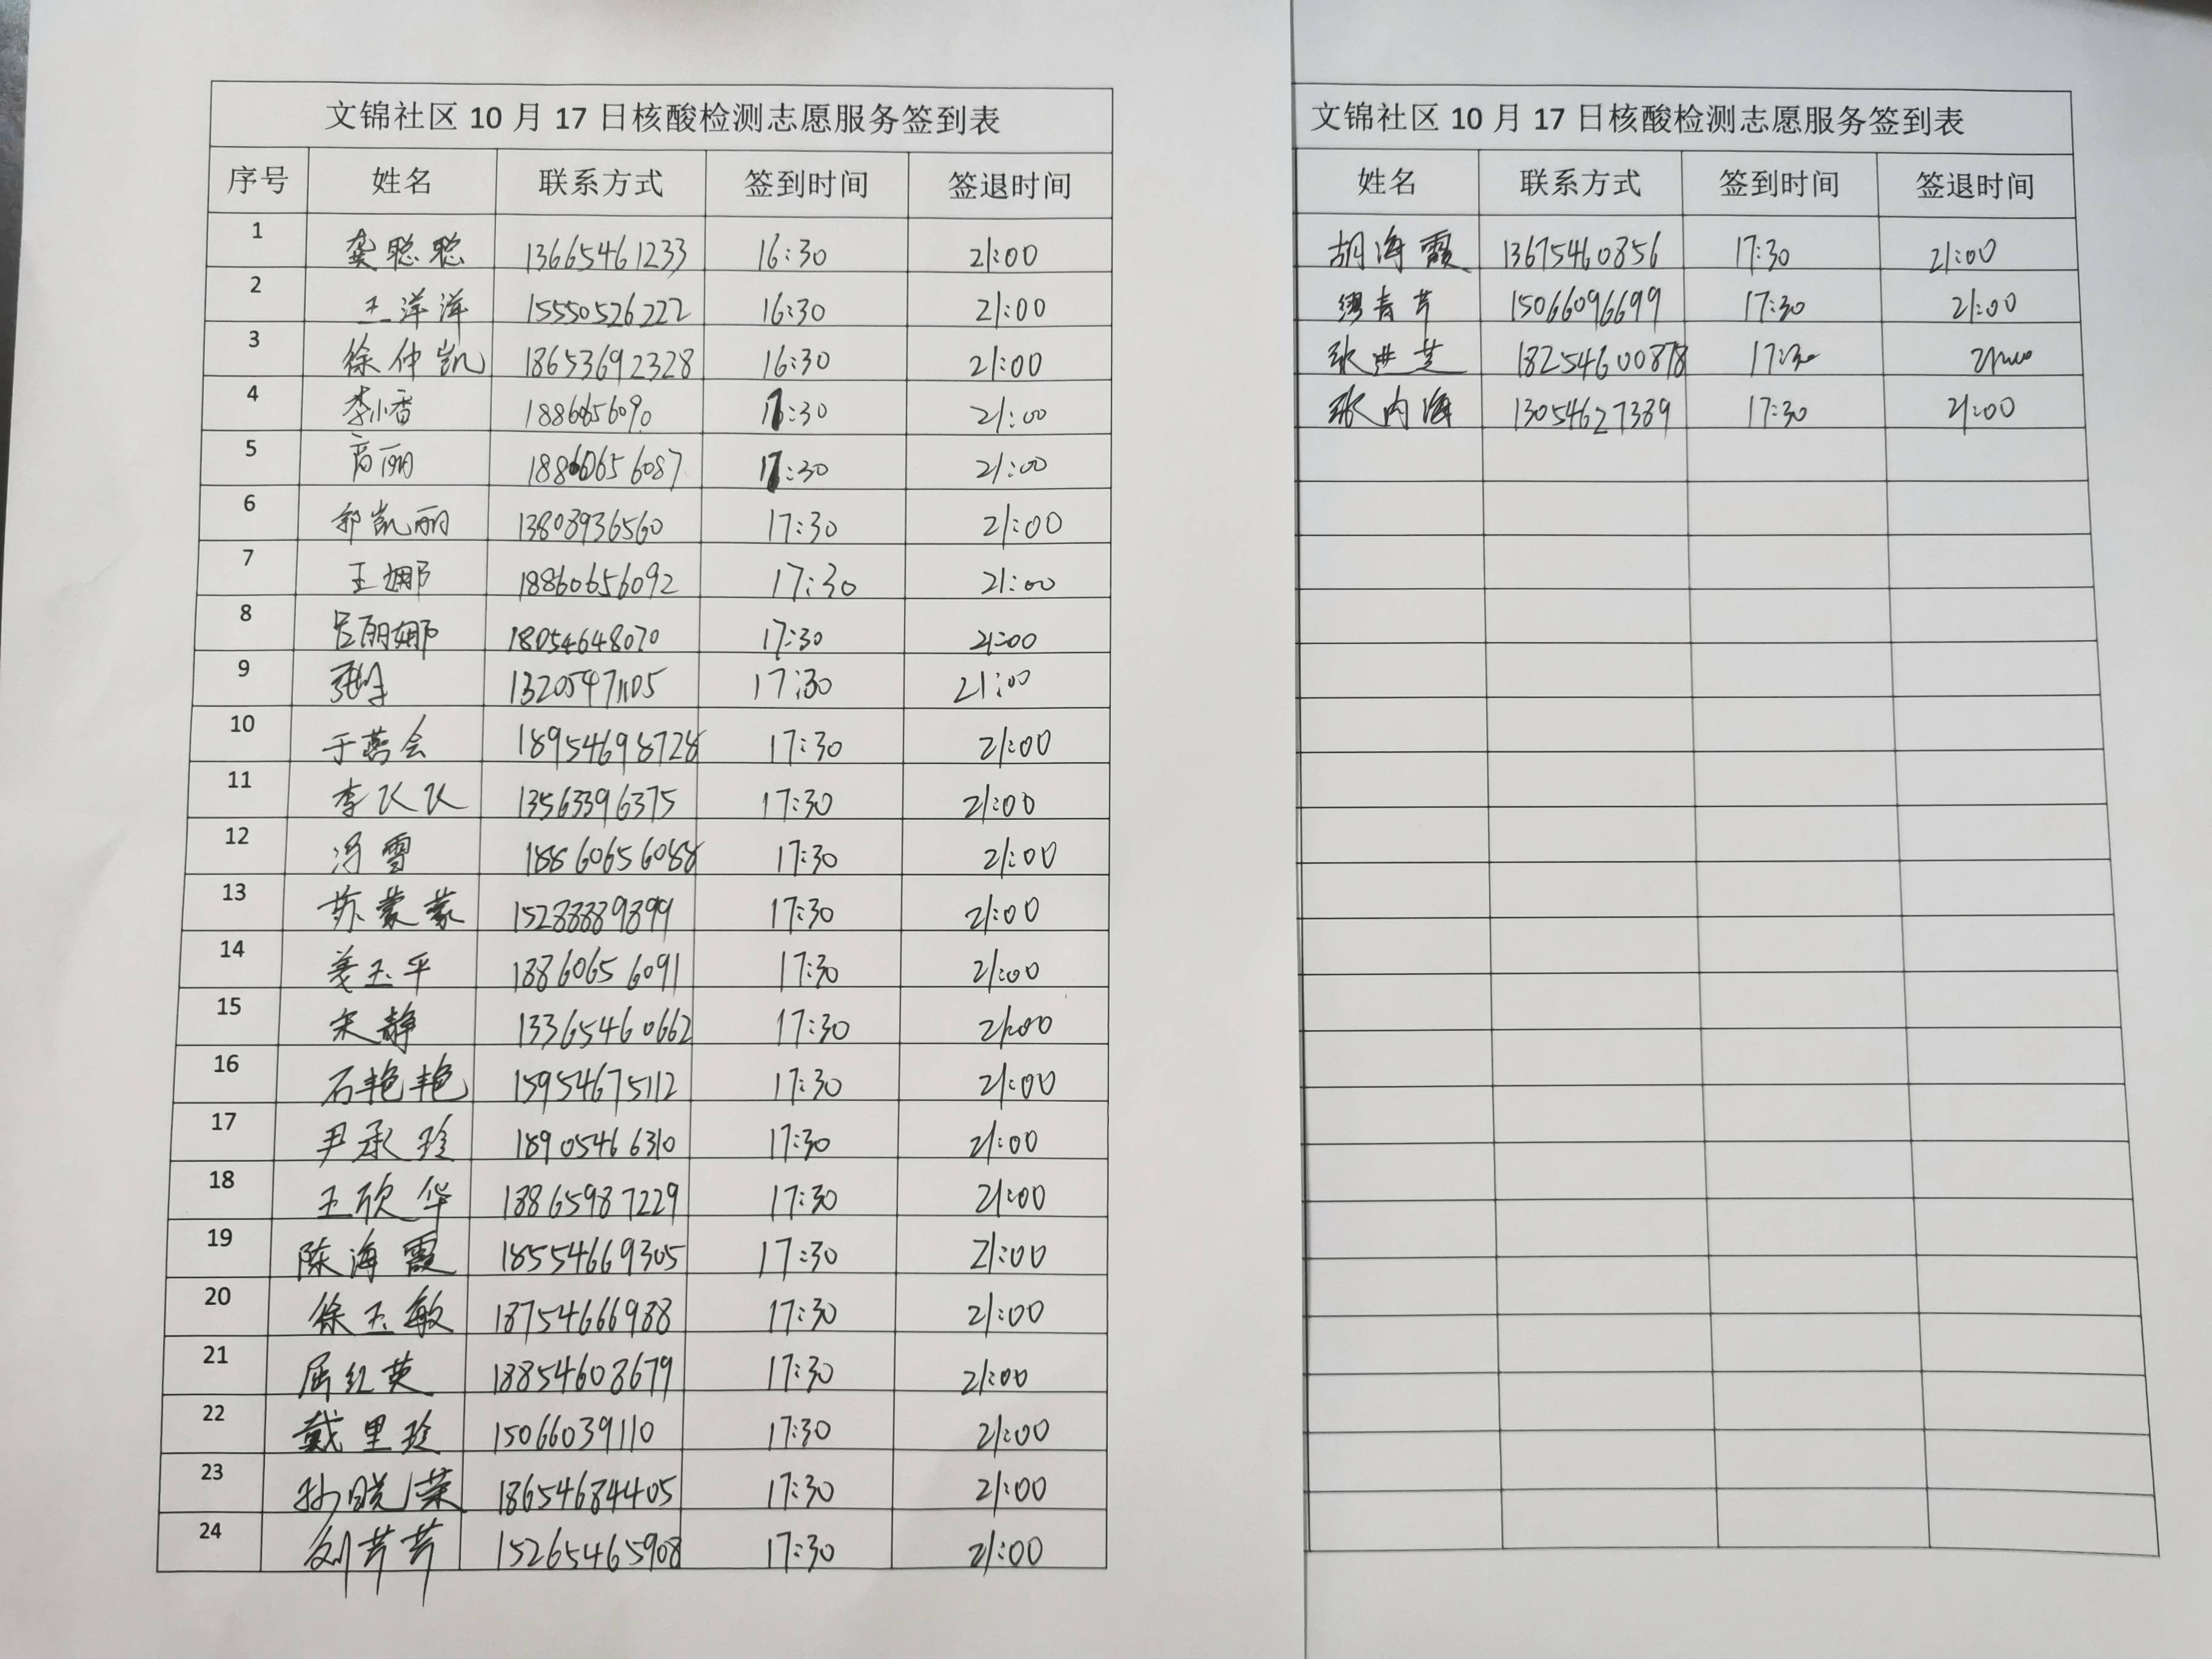 文锦社区 10 月 17 日核酸检测志愿服务签到表
序号 姓名 联系方式 签到时间 签退时间
1 龚聪聪 13665461233 16:30 21:00
2 王洋洋 15550526222 16:30 21:00
3 徐仲凯 18653692328 16:30 21:00
4 李小香 17:30 21:00
5 高丽 18860656087 17:30 21:00
6 郭凯丽 13808936560 17:30 21:00
7 王娜 18860656092 17:30 21:00
8 吕丽娜 18054648070 17:30 21:00
9 13205471105 17:30 21:00
10 于燕会 18954698728 17:30 21:00
11 李以以 13563396375 17:30 21:00
12 冯雪 18860656088 17:30 21:00
13 苏蒙蒙 15288889899 17:30 21:00
14 姜玉平 18860656091 17:30 21:00
15 宋静 13365460662 17:30 21:00
16 石艳艳 15954675112 17:30 21:00
17 尹承珍 18905466310 17:30 21:00
18 王欣华 18865987229 17:30 21:00
19 陈海霞 18554669305 17:30 21:00
20 徐玉敏 18754666988 17:30 21:00
21 屈红英 18854608679 17:30 21:00
22 戴里珍 15066039110 17:30 21:00
23 孙晓荣 18654684405 17:30 21:00
24 刘芹芹 15265465908 17:30 21:00
文锦社区 10 月 17 日核酸检测志愿服务签到表
姓名 联系方式 签到时间 签退时间
胡海霞 13675460856 17:30 21:00
缪青芹 15066096699 17:30 21:00
张典芝 18254600878 17:30 21:00
张内海 13054627389 17:30 21:00